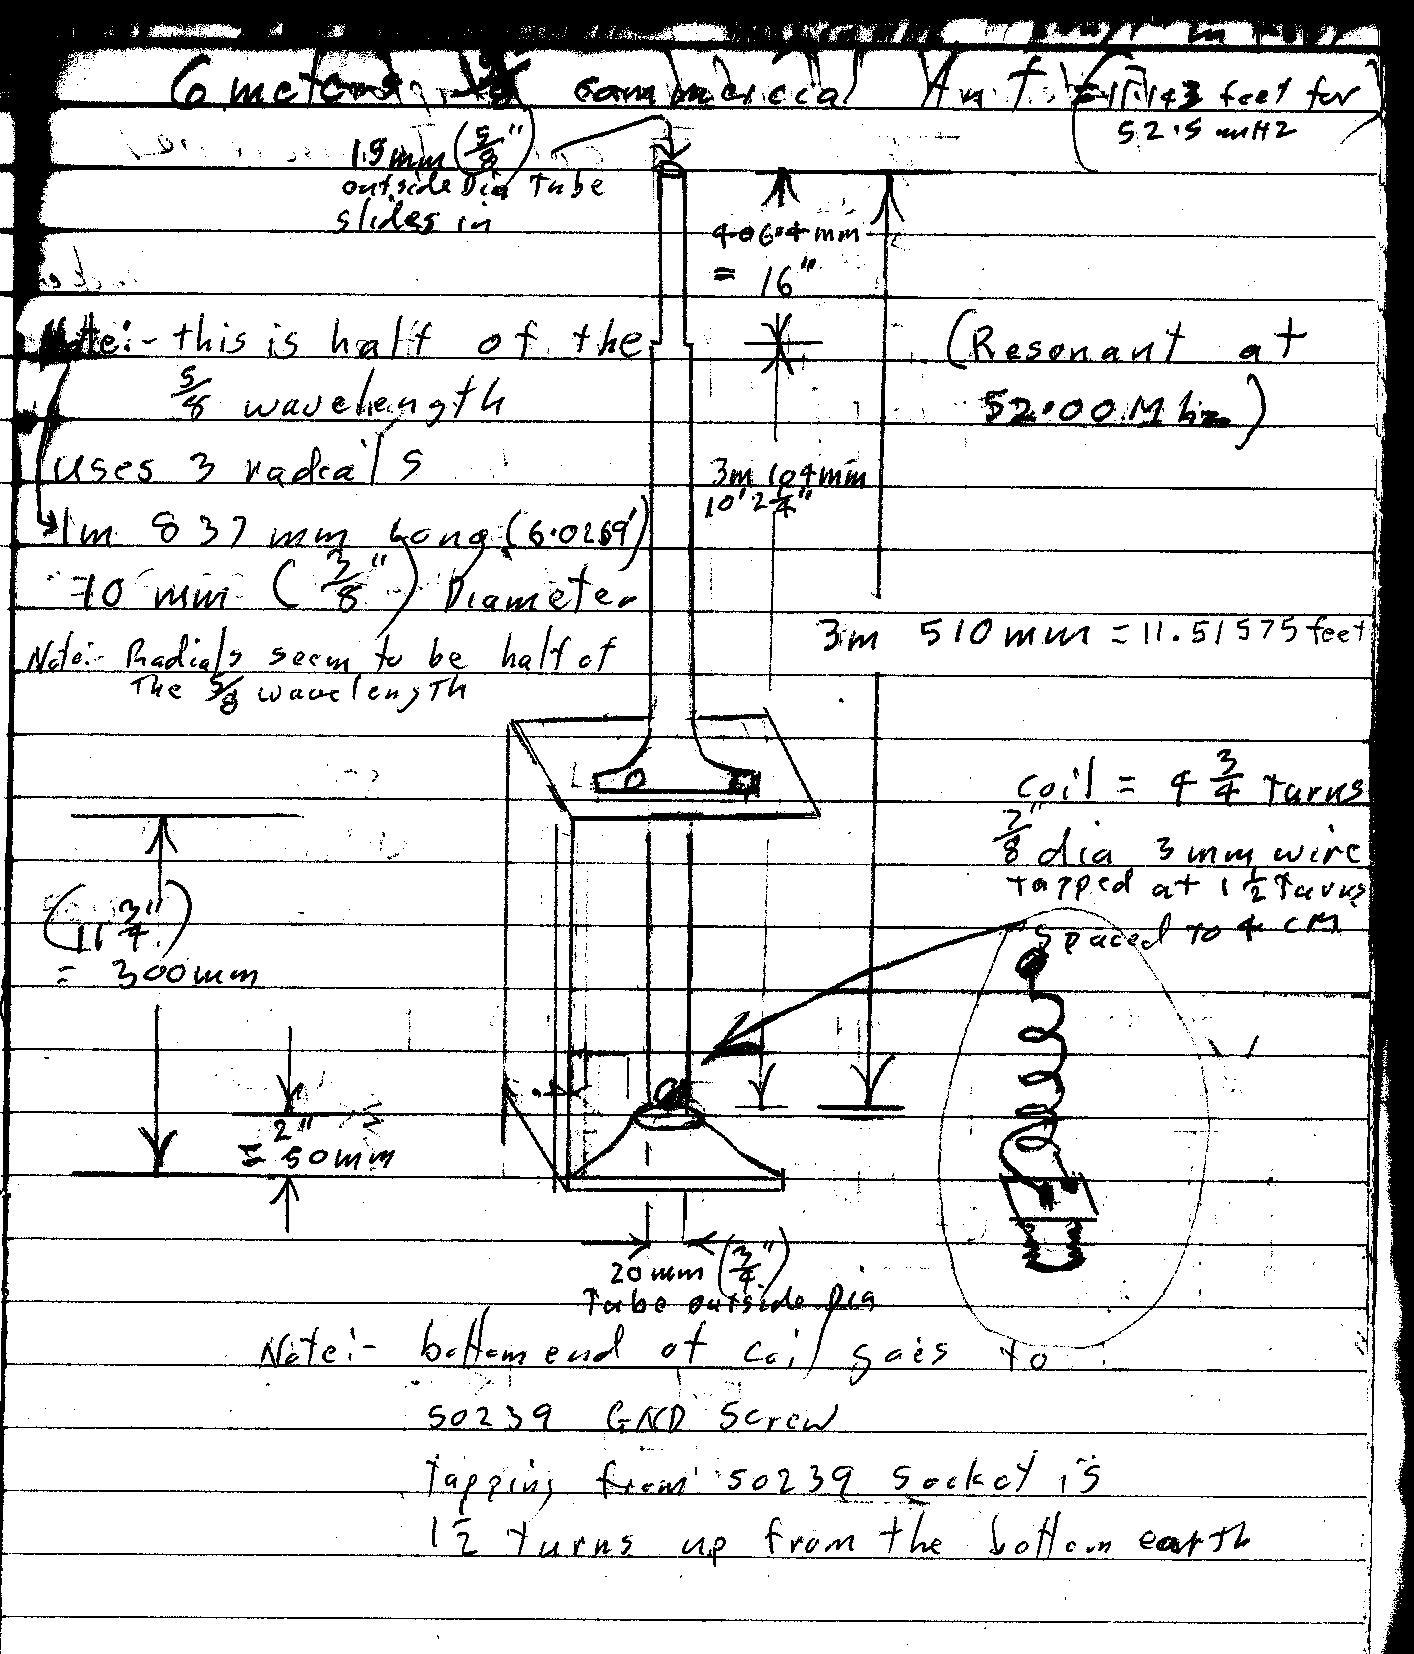 6 meters 5/8 commercial Ant (= 11.143 feet for
52.5 mHz
15mm (5/8")
outside Dia Tube
slides in
406.4 mm
= 16"
Note:- this is half of the
5/8 wavelength
(Resonant at
52.00 Mhz)
uses 3 radials
3m 104mm
10' 2 1/4"
1m 837 mm Long (6.0269')
10 mm (3/8") Diameter
3m 510mm = 11.51575 feet
Note:- Radials seem to be half of
The 5/8 wavelength
coil = 4 3/4 turns
7/8" dia 3mm wire
tapped at 1 1/2 Turns
spaced to 4 CM
(11 3/4")
= 300mm
2"
= 50mm
20mm (3/4")
Tube outside Dia
Note:- bottom end of coil goes to
SO239 GND Screw
Tapping from SO239 Socket is
1 1/2 turns up from the bottom earth